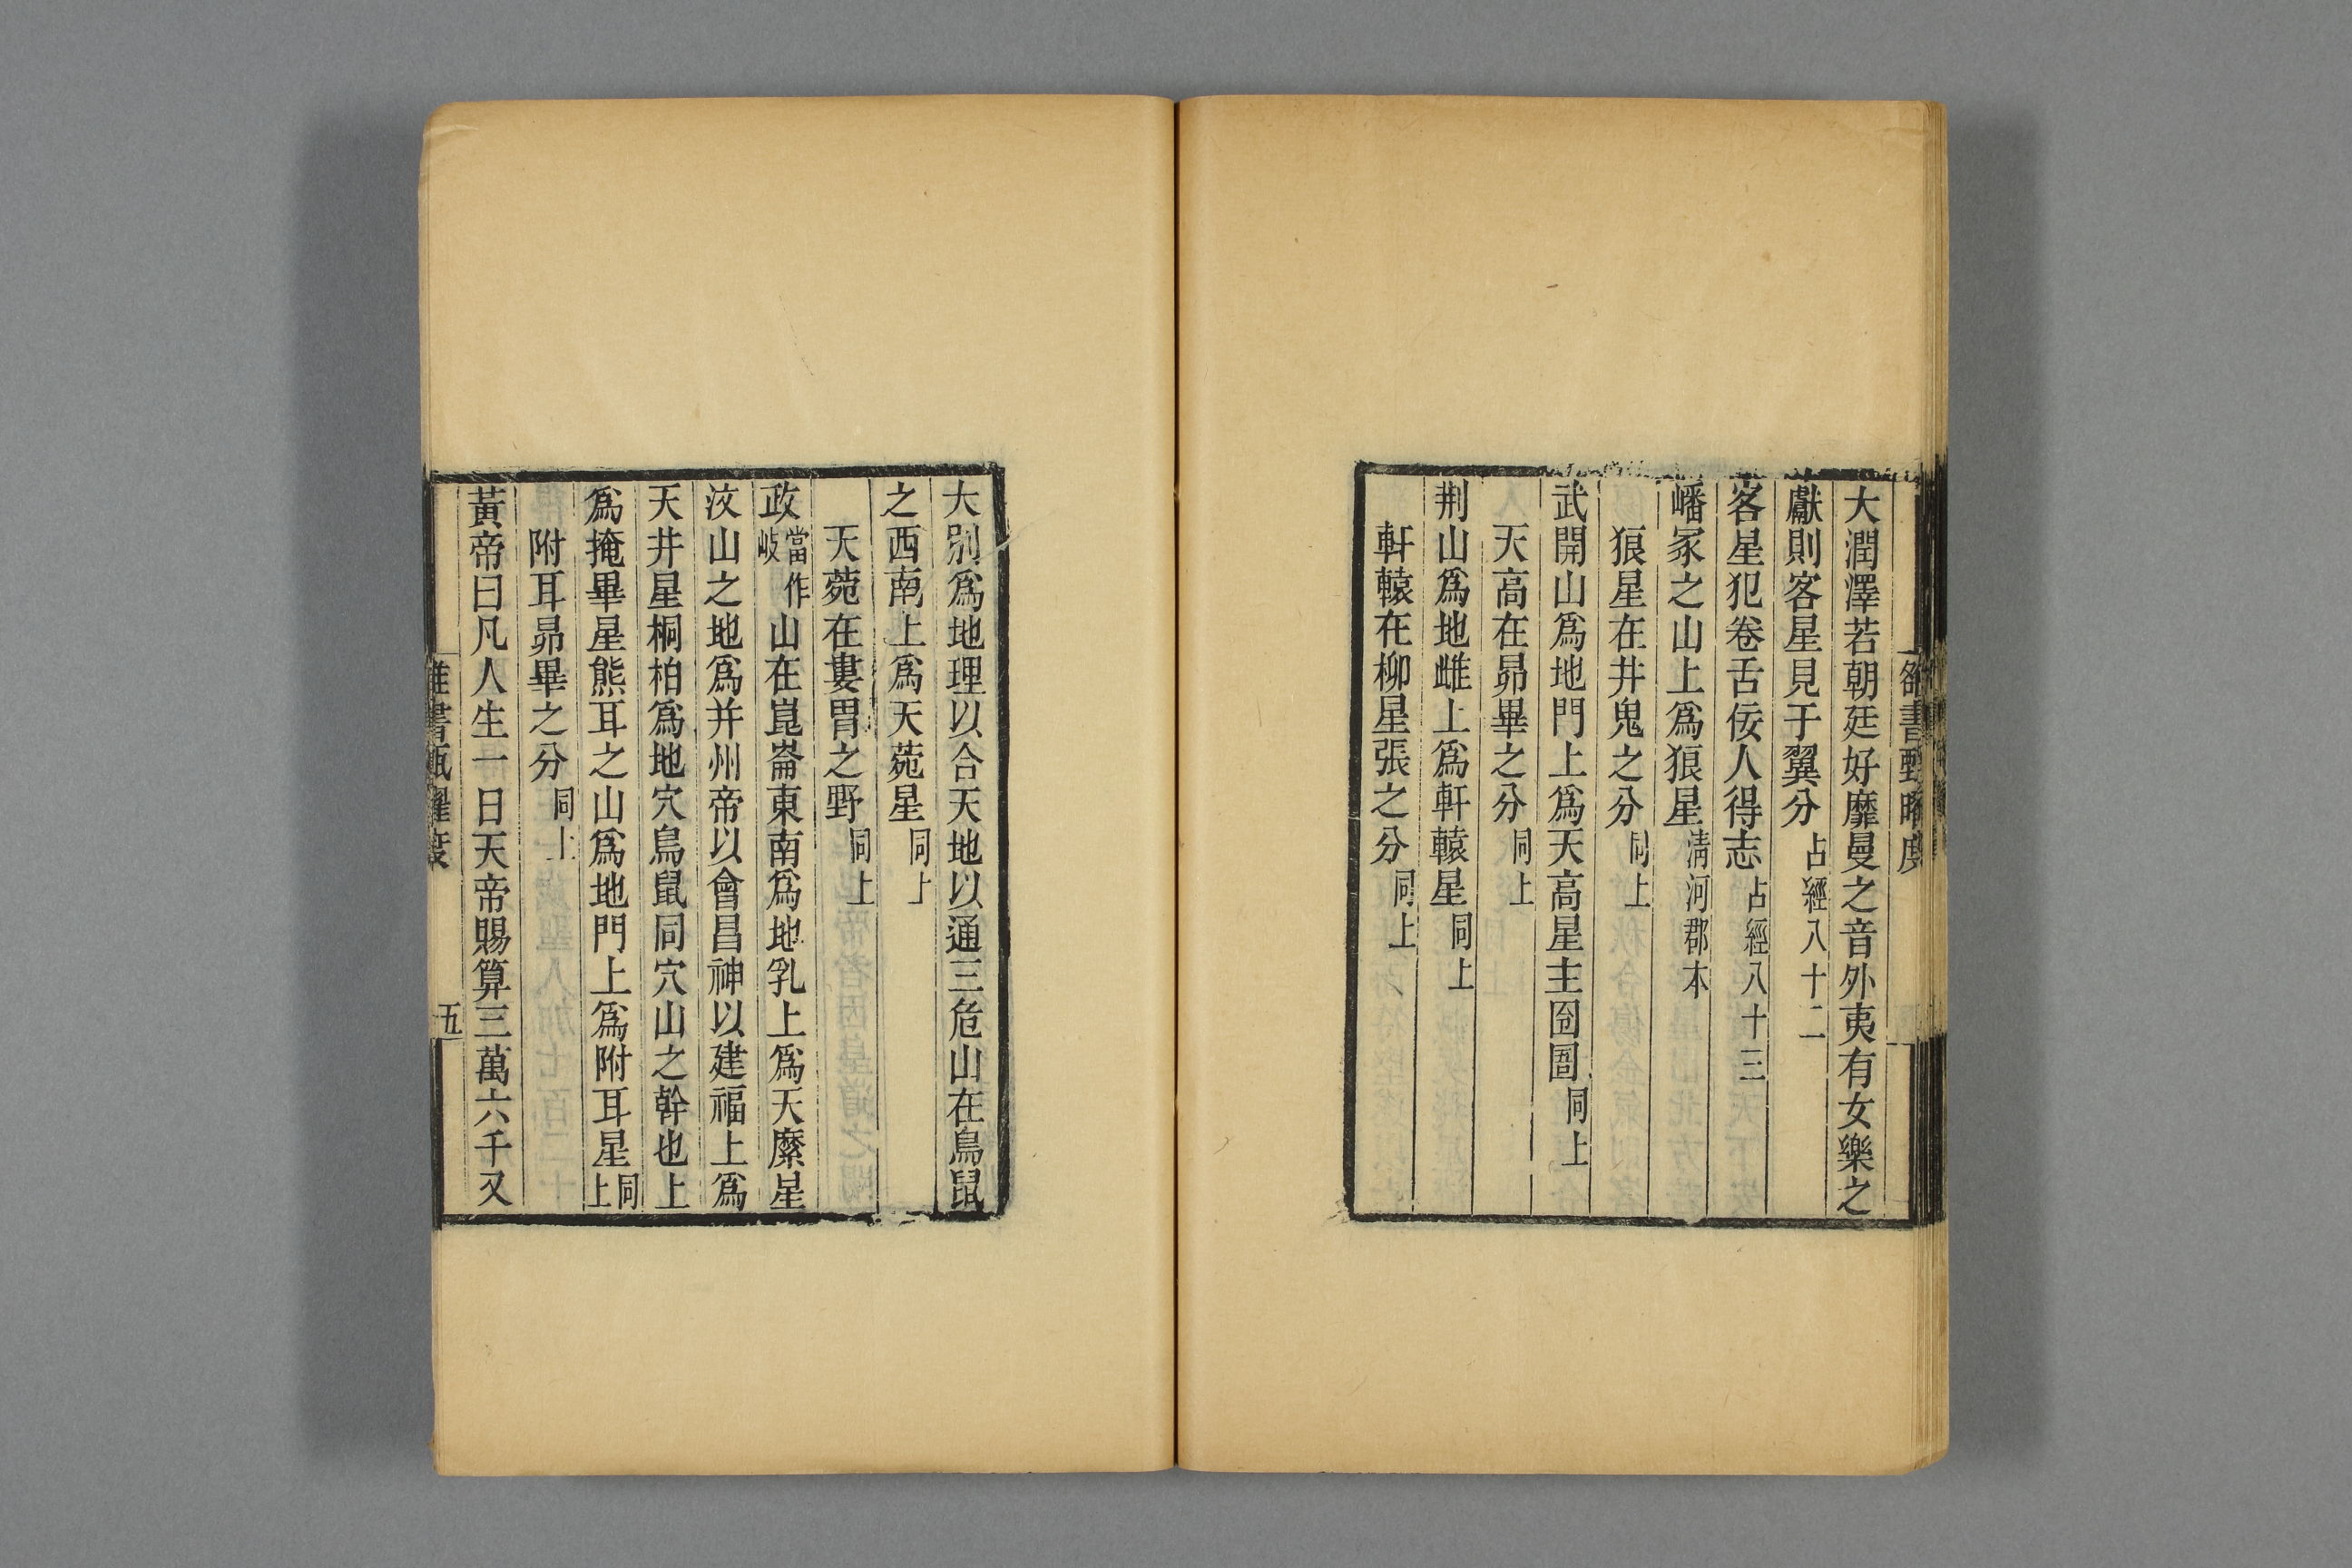 大潤澤若朝廷好靡曼之音外夷有女樂之
獻則客星見于翼分占經八十二
客星犯卷舌佞人得志占經八十三
嶓冢之山上爲狼星清河郡本
狼星在井鬼之分同上
武開山爲地門上爲天高星主囹圄同上
天高在昴畢之分同上
荆山爲地雌上爲軒轅星同上
軒轅在柳星張之分同上
大別爲地理以合天地以通三危山在鳥鼠
之西南上爲天菀星同上
天菀在婁胃之野同上
政當作岐山在崑崙東南爲地乳上爲天糜星
汶山之地爲并州帝以會昌神以建福上爲
天井星桐柏爲地穴鳥鼠同穴山之幹也上
爲掩畢星熊耳之山爲地門上爲附耳星同上
附耳昴畢之分同上
黃帝曰凡人生一日天帝賜算三萬六千又
五